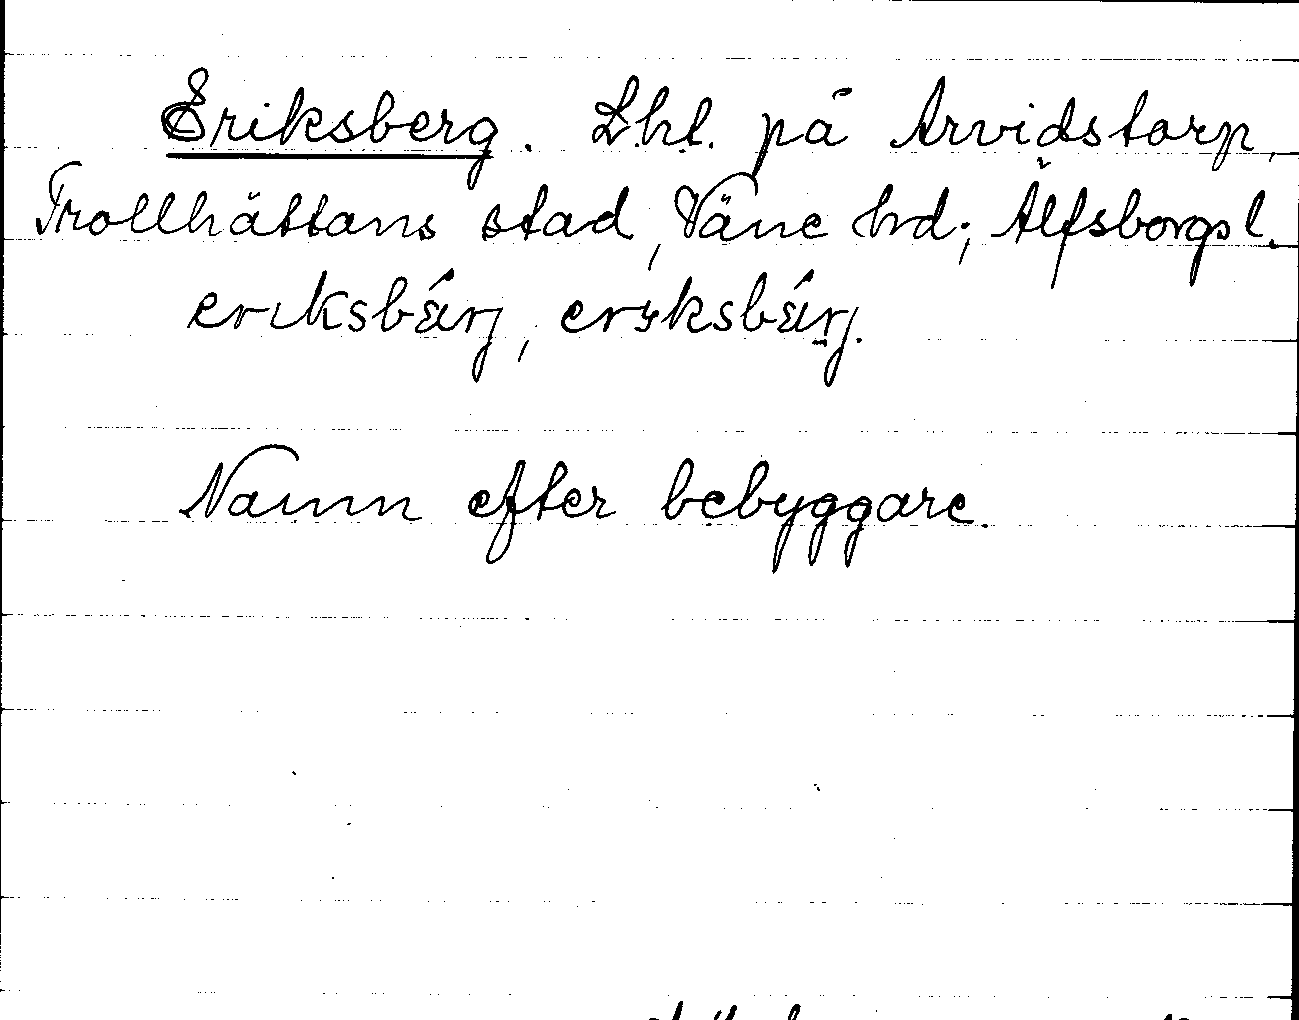 Eriksberg. Lht. på Arvidstorp,
Trollhättans stad, Väne hd; Älfsborgs l.
erıksbǽrj, erıksbǽrj.
Namn efter bebyggare.